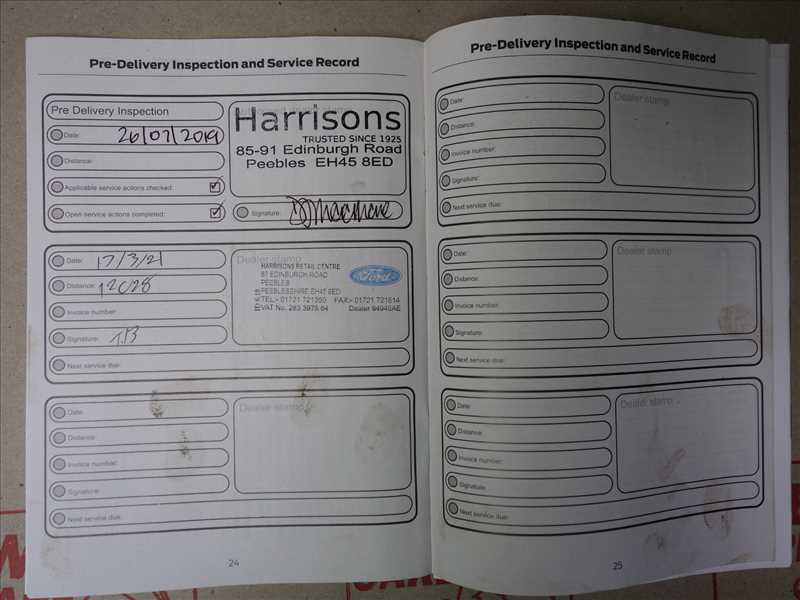 Pre-Delivery Inspection and Service Record
Pre Delivery Inspection
Date: 26/07/2019
Distance:
Applicable service actions checked:
Open service actions completed:
Harrisons
TRUSTED SINCE 1925
85-91 Edinburgh Road
Peebles EH45 8ED
Signature:
Date: 17/3/21
Distance: 12028
Invoice number:
Signature: T.B
Next service due:
Dealer stamp
HARRISONS RETAIL CENTRE
87 EDINBURGH ROAD
PEEBLES
PEEBLESSHIRE EH45 8ED
TEL:- 01721 721350 FAX:- 01721 721614
VAT No. 283 3975 64 Dealer 94948AE
Ford
Date:
Distance:
Invoice number:
Signature:
Next service due:
Dealer stamp
24
Pre-Delivery Inspection and Service Record
Date:
Distance:
Invoice number:
Signature:
Next service due:
Dealer stamp
Date:
Distance:
Invoice number:
Signature:
Next service due:
Dealer stamp
Date:
Distance:
Invoice number:
Signature:
Next service due:
Dealer stamp
25